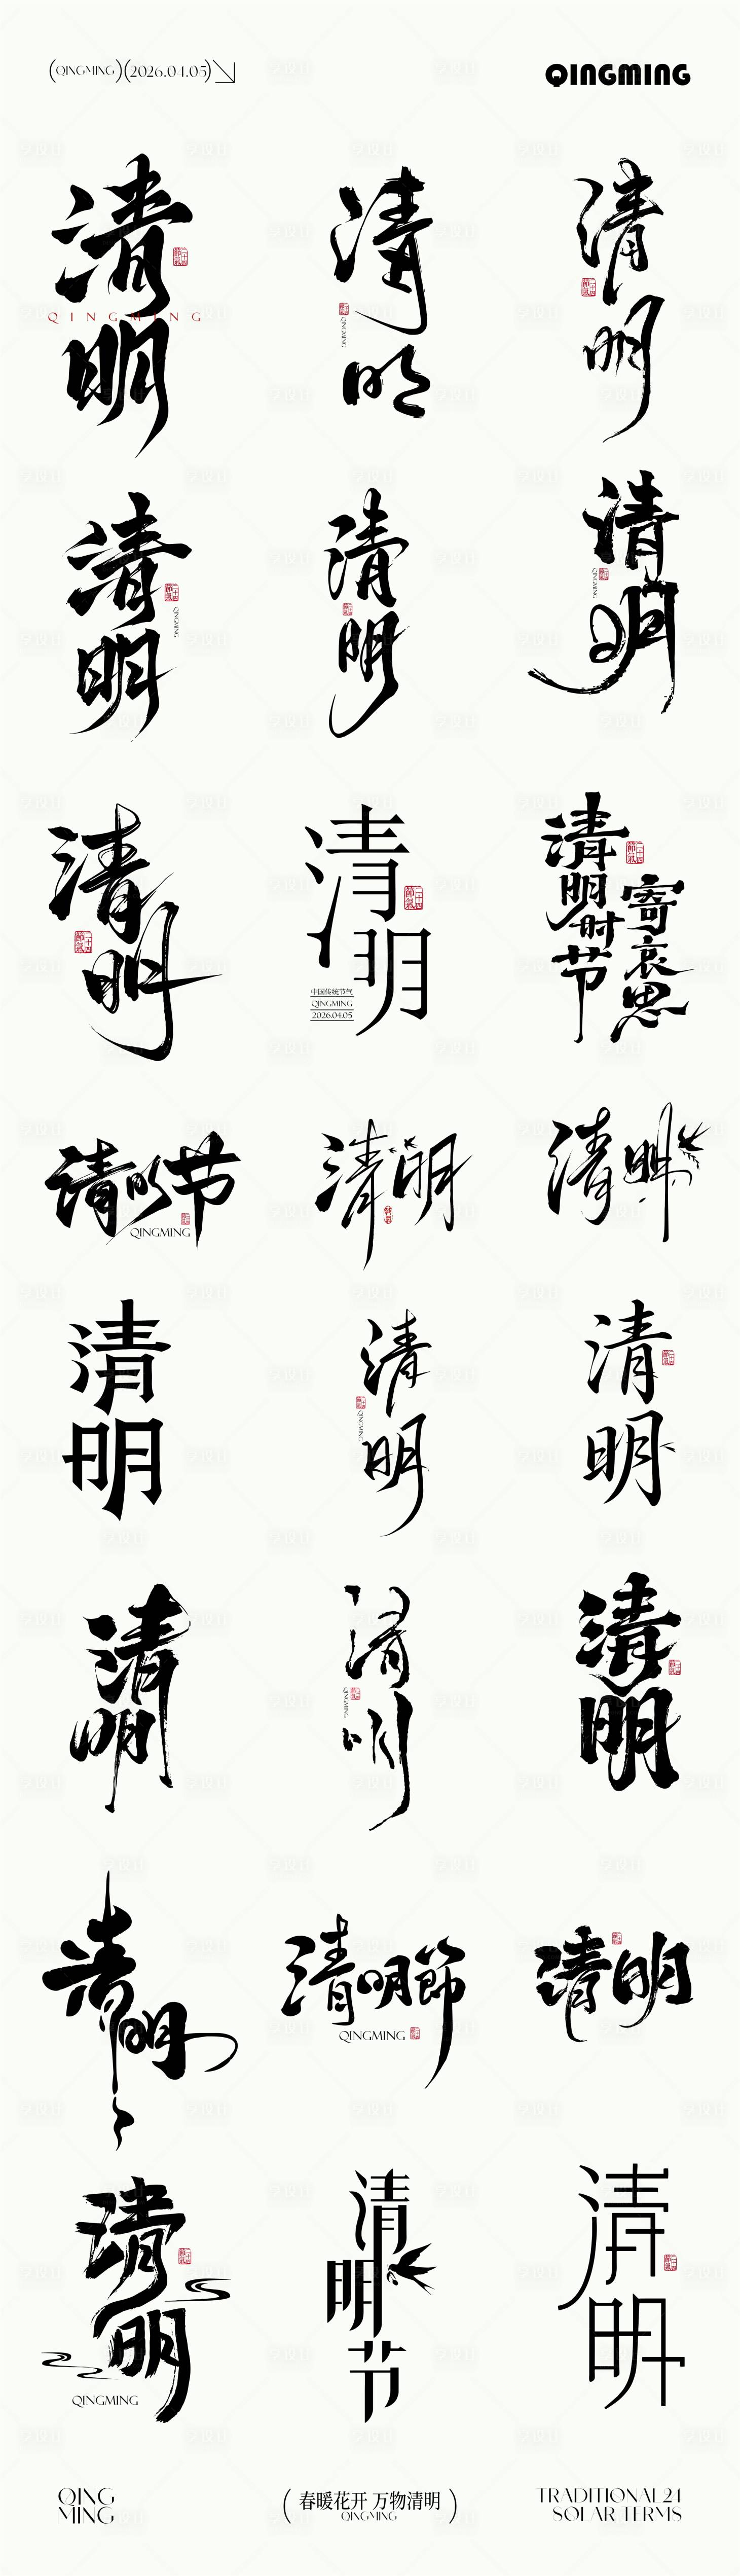 (QINGMING)(2026.04.05)
QINGMING
清明
QINGMING
清明
QINGMING
清明
清明
QINGMING
清明
清明
QINGMING
清明
清明
中国传统节气
QINGMING
2026.04.05
清明时节
寄哀思
清明节
QINGMING
清明
清明
清明
清明
QINGMING
清明
清明
清明
QINGMING
清明
清明
清明節
QINGMING
清明
清明
QINGMING
清明节
清明
QING
MING
(春暖花开 万物清明)
QINGMING
TRADITIONAL 24
SOLAR TERMS